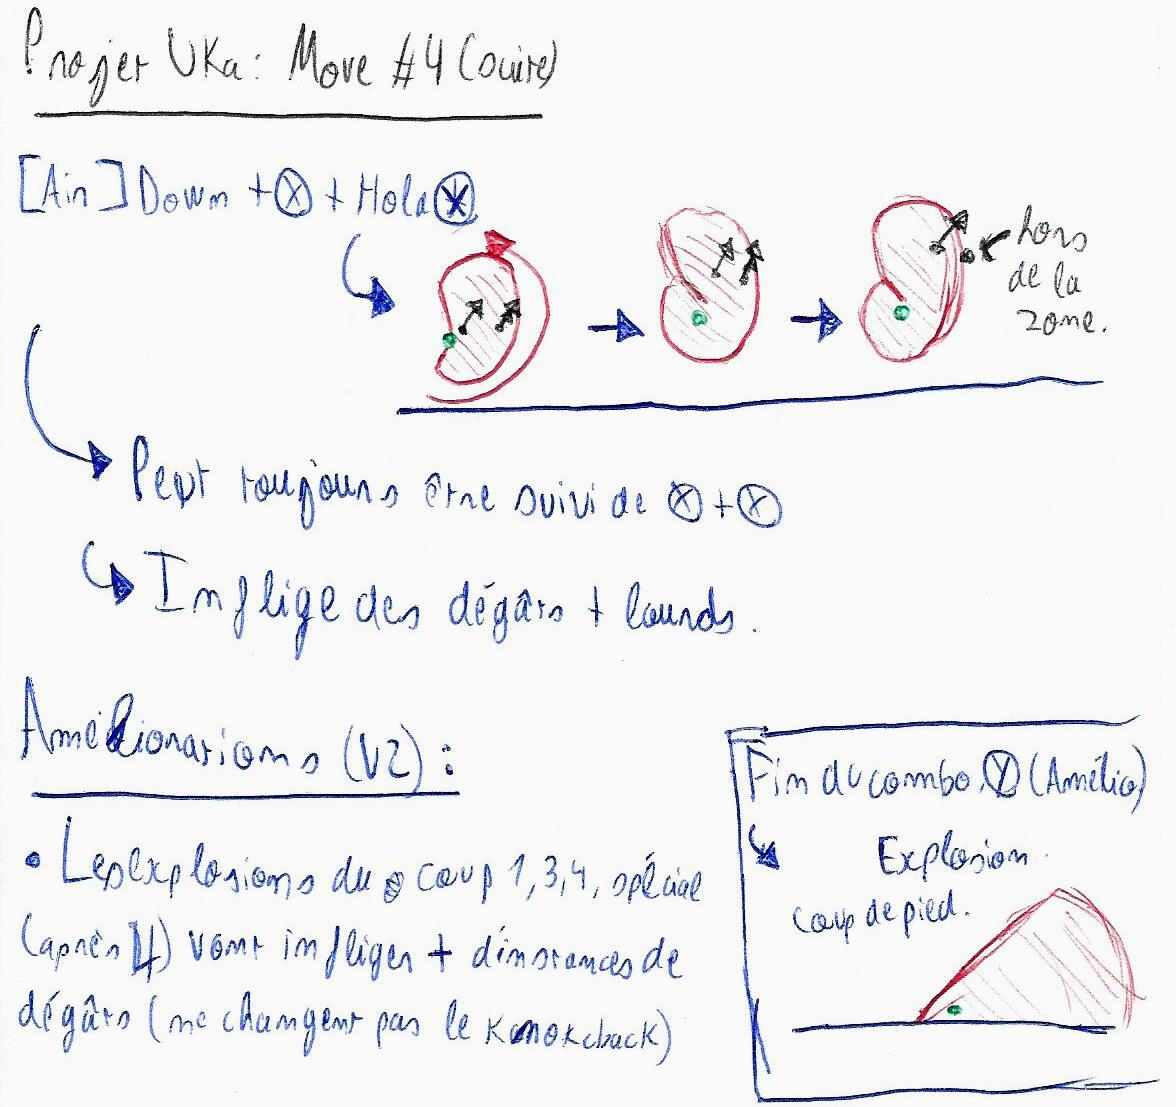 Projet UKa: Move #4 (suite)
[Air] Down + Ⓧ + Hold Ⓧ
hors
de la
zone.
Peut toujours être suivi de Ⓧ + Ⓧ
Inflige des dégâts + lourds.
Améliorations (V2) :
• Les explosions du coup 1, 3, 4, spécial
(après 4) vont infliger + d'instances de
dégâts (ne changent pas le knockback)
Fin du combo Ⓨ (Amélio)
Explosion
coup de pied.